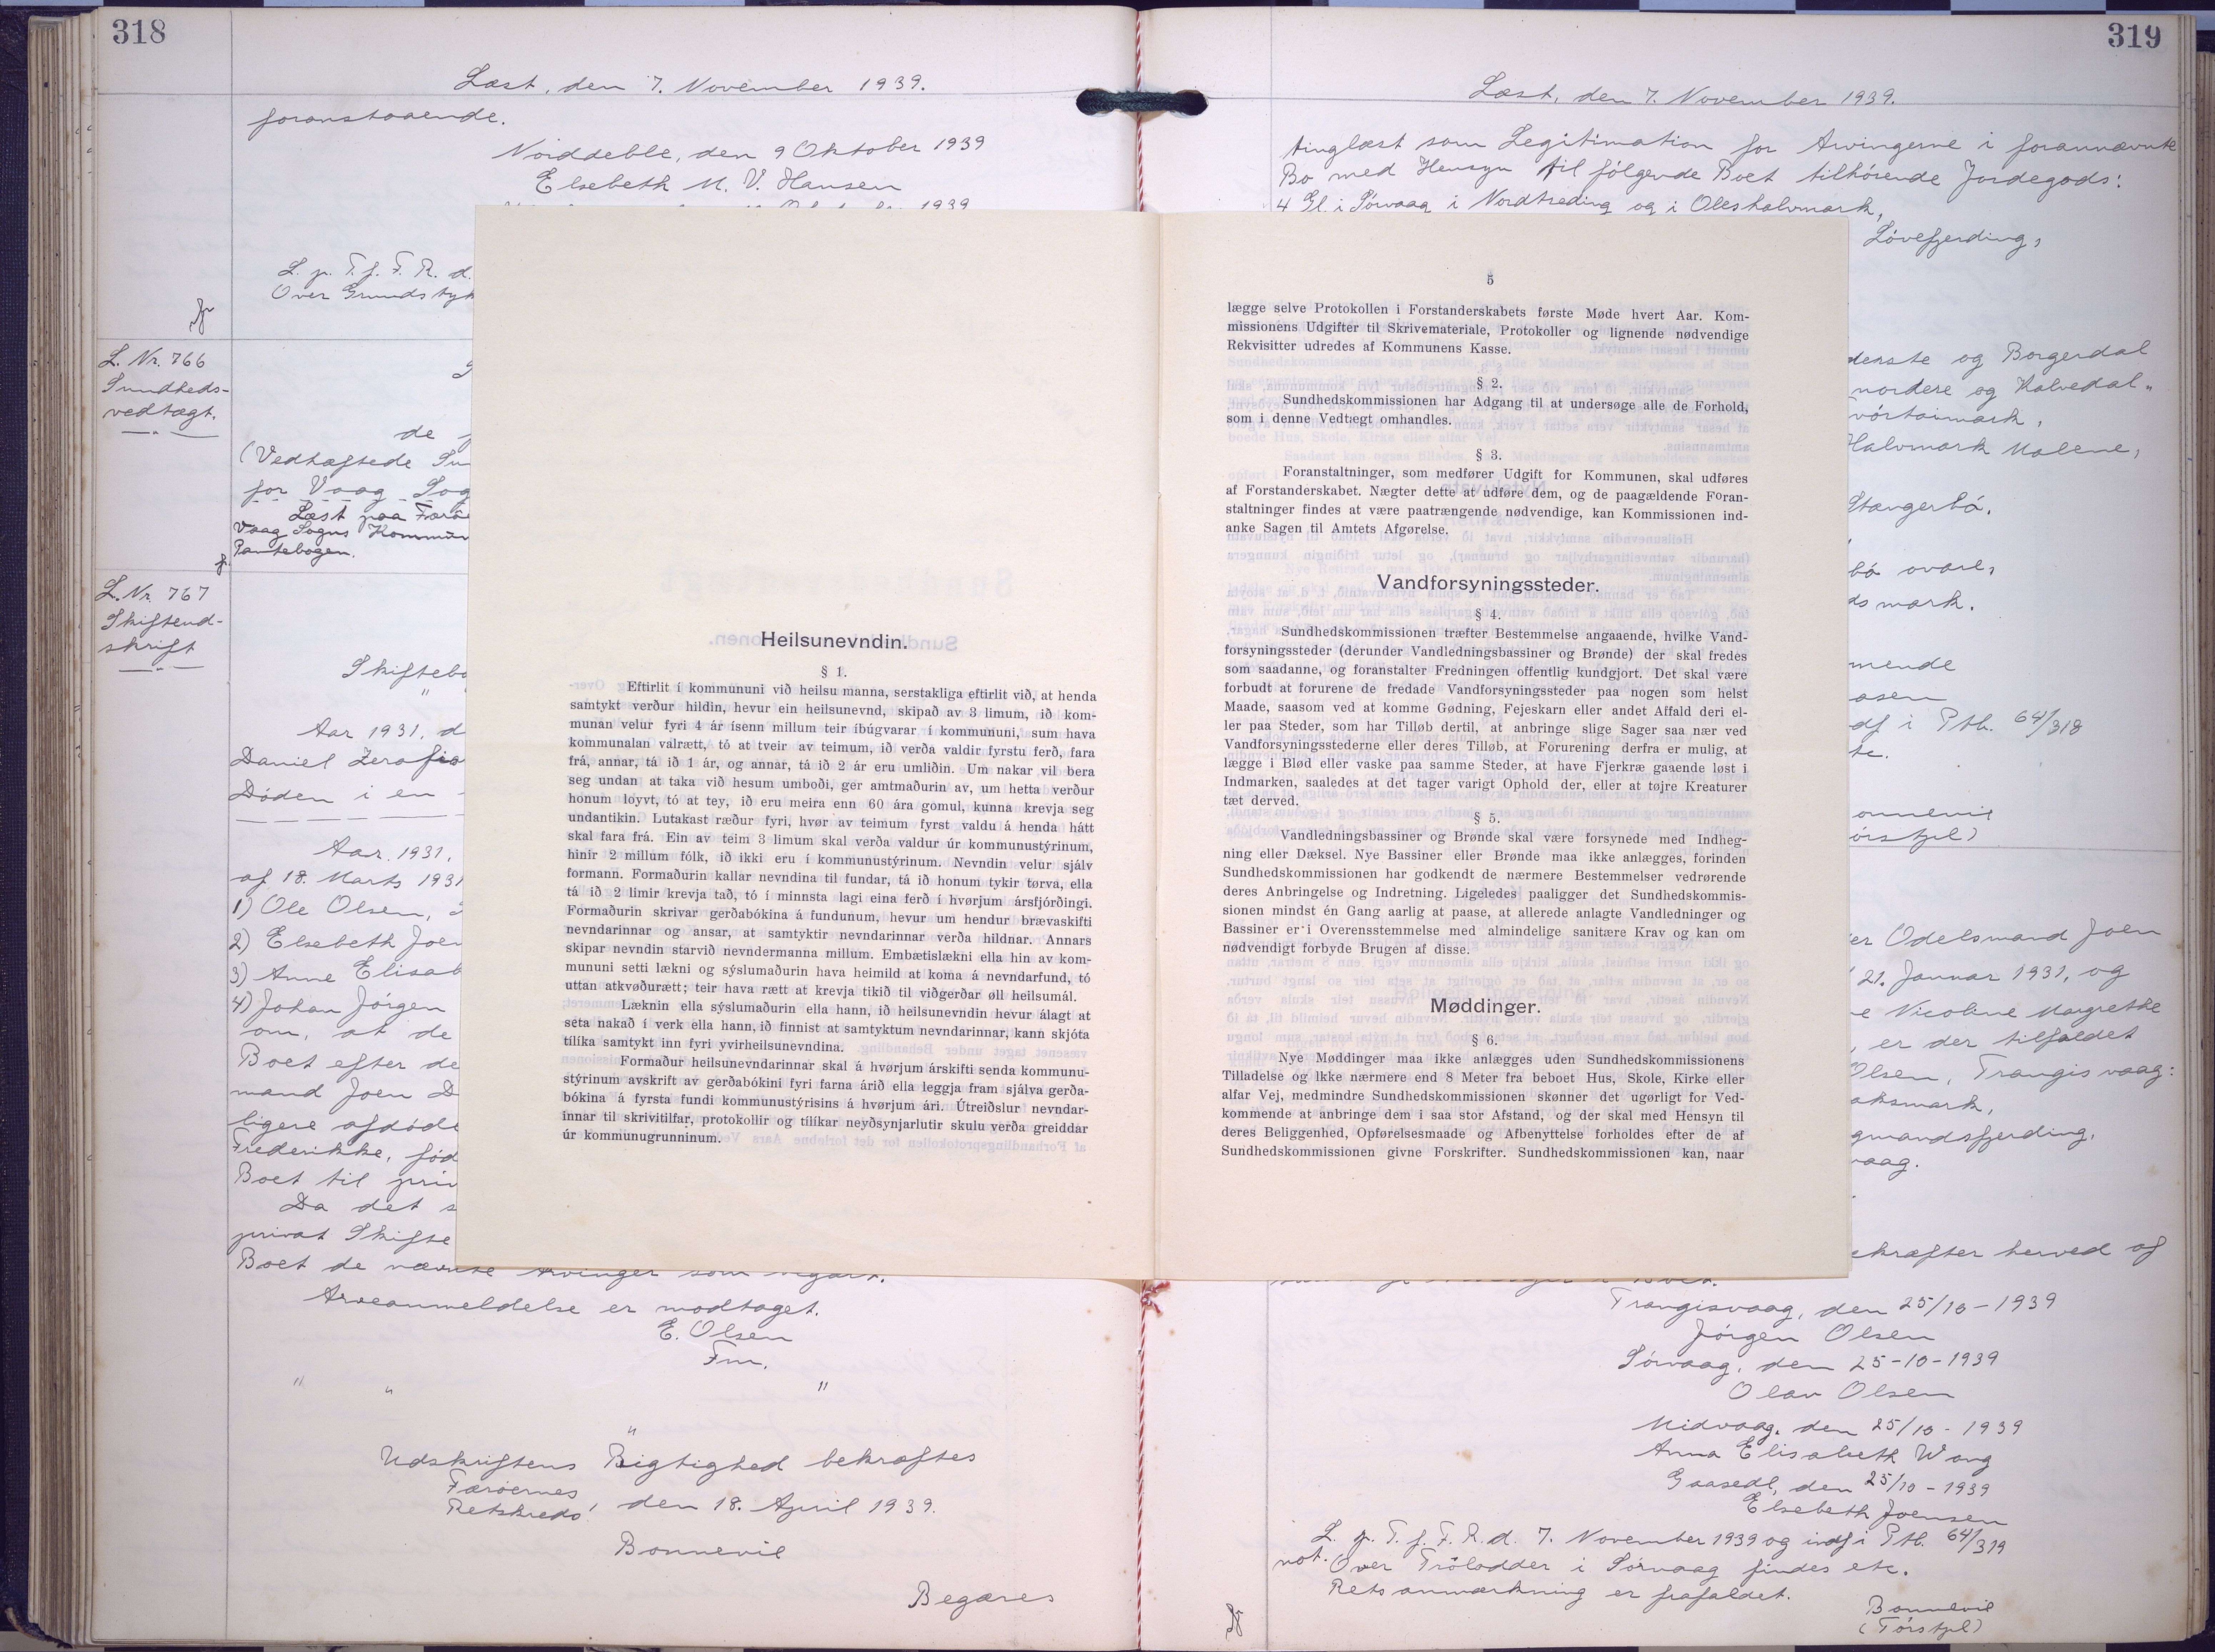 318
Læst, den 7. November 1939.
foranstaaende.
Norddeble, den 9 Oktober 1939
Elsebeth M. V. Hansen
L. p. T. f. F. R. d.
Over Grundstyk
L. Nr. 766
Sundheds-
vedtægt.
de
(Vedhæftede Su
for Vaag Sog
Læst paa Færø
Vaag Sogns Kommun
Pantebogen.
L. Nr. 767
Skifteud-
skrift
Skiftebo
Aar 1931, d
Daniel Zerafia
Döden i en
Aar 1931,
af 18. Marts 1931
1) Ole Olsen,
2) Elsebeth Joen
3) Anne Elisab
4) Johan Jörgen
om, at de
Boet efter de
mand Joen D
ligere afdöde
Frederikke, föd
Boet til priv
Da det s
privat Skifte
Boet de nævnte Arvinger som
Arveanmeldelse er modtaget.
E. Olsen
Fm.
Udskriftens Rigtighed bekræftes
Færöernes
Retskreds, den 18. April 1939.
Bonnevil
Begæres
Heilsunevndin.
§ 1.
Eftirlit í kommununi við heilsu manna, serstakliga eftirlit við, at henda
samtykt verður hildin, hevur ein heilsunevnd, skipað av 3 limum, ið kom-
munan velur fyri 4 ár ísenn millum teir íbúgvarar í kommununi, sum hava
kommunalan valrætt, tó at tveir av teimum, ið verða valdir fyrstu ferð, fara
frá, annar, tá ið 1 ár, og annar, tá ið 2 ár eru umliðin. Um nakar vil bera
seg undan at taka við hesum umboði, ger amtmaðurin av, um hetta verður
honum loyvt, tó at tey, ið eru meira enn 60 ára gomul, kunna krevja seg
undantikin. Lutakast ræður fyri, hvør av teimum fyrst valdu á henda hátt
skal fara frá. Ein av teim 3 limum skal verða valdur úr kommunustýrinum,
hinir 2 millum fólk, ið ikki eru í kommunustýrinum. Nevndin velur sjálv
formann. Formaðurin kallar nevndina til fundar, tá ið honum tykir tørva, ella
tá ið 2 limir krevja tað, tó í minnsta lagi eina ferð í hvørjum ársfjórðingi.
Formaðurin skrivar gerðabókina á fundunum, hevur um hendur brævaskifti
nevndarinnar og ansar, at samtyktir nevndarinnar verða hildnar. Annars
skipar nevndin starvið nevndermanna millum. Embætislækni ella hin av kom-
mununi setti lækni og sýslumaðurin hava heimild at koma á nevndarfund, tó
uttan atkvøðurætt; teir hava rætt at krevja tikið til viðgerðar øll heilsumál.
Læknin ella sýslumaðurin ella hann, ið heilsunevndin hevur álagt at
seta nakað í verk ella hann, ið finnist at samtyktum nevndarinnar, kann skjóta
tílíka samtykt inn fyri yvirheilsunevndina.
Formaður heilsunevndarinnar skal á hvørjum árskifti senda kommunu-
stýrinum avskrift av gerðabókini fyri farna árið ella leggja fram sjálva gerða-
bókina á fyrsta fundi kommunustýrisins á hvørjum ári. Útreiðslur nevndar-
innar til skrivitilfar, protokollir og tílíkar neyðsynjarlutir skulu verða greiddar
úr kommunugrunninum.
5
lægge selve Protokollen i Forstanderskabets første Møde hvert Aar. Kom-
missionens Udgifter til Skrivemateriale, Protokoller og lignende nødvendige
Rekvisitter udredes af Kommunens Kasse.
§ 2.
Sundhedskommissionen har Adgang til at undersøge alle de Forhold,
som i denne Vedtægt omhandles.
§ 3.
Foranstaltninger, som medfører Udgift for Kommunen, skal udføres
af Forstanderskabet. Nægter dette at udføre dem, og de paagældende Foran-
staltninger findes at være paatrængende nødvendige, kan Kommissionen ind-
anke Sagen til Amtets Afgørelse.
Vandforsyningssteder.
§ 4.
Sundhedskommissionen træfter Bestemmelse angaaende, hvilke Vand-
forsyningssteder (derunder Vandledningsbassiner og Brønde) der skal fredes
som saadanne, og foranstalter Fredningen offentlig kundgjort. Det skal være
forbudt at forurene de fredade Vandforsyningssteder paa nogen som helst
Maade, saasom ved at komme Gødning, Fejeskarn eller andet Affald deri el-
ler paa Steder, som har Tilløb dertil, at anbringe slige Sager saa nær ved
Vandforsyningsstederne eller deres Tilløb, at Forurening derfra er mulig, at
lægge i Blød eller vaske paa samme Steder, at have Fjerkræ gaaende løst i
Indmarken, saaledes at det tager varigt Ophold der, eller at tøjre Kreaturer
tæt derved.
§ 5.
Vandledningsbassiner og Brønde skal være forsynede med Indheg-
ning eller Dæksel. Nye Bassiner eller Brønde maa ikke anlægges, forinden
Sundhedskommissionen har godkendt de nærmere Bestemmelser vedrørende
deres Anbringelse og Indretning. Ligeledes paaligger det Sundhedskommis-
sionen mindst én Gang aarlig at paase, at allerede anlagte Vandledninger og
Bassiner er i Overensstemmelse med almindelige sanitære Krav og kan om
nødvendigt forbyde Brugen af disse.
Møddinger.
§ 6.
Nye Møddinger maa ikke anlægges uden Sundhedskommissionens
Tilladelse og ikke nærmere end 8 Meter fra beboet Hus, Skole, Kirke eller
alfar Vej, medmindre Sundhedskommissionen skønner det ugørligt for Ved-
kommende at anbringe dem i saa stor Afstand, og der skal med Hensyn til
deres Beliggenhed, Opførelsesmaade og Afbenyttelse forholdes efter de af
Sundhedskommissionen givne Forskrifter. Sundhedskommissionen kan, naar
319
Læst, den 7. November 1939.
tinglæst som Legitimation for Arvingerne i forannævnte
Bo med Hensyn til fölgende Boet tilhörende Jordegods:
4 Gl. i Sörvaag i Nordtreding og i Oleshalvmark,
Lövefjerding,
denste og Borgerdal
nordere og Halvedal
vörtaimark,
Halvmark Malene,
Stangerbö,
bö ovare,
ds mark.
mende
asen
i Ptb. 64/318
etc.
onnevil
örstjel)
er Odelsmand Joen
21. Januar 1931, og
e Nicoline Margrethe
, er der tilfaldet
Olsen, Trangisvaag:
aksmark,
gmandsfjerding,
vaag.
ekræfter herved af
Trangisvaag, den 25/10-1939
Jörgen Olsen
Sörvaag, den 25-10-1939
Olav Olsen
Midvaag, den 25/10-1939
Anna Elisabeth Wang
Gaasedl, den 25/10-1939
Elsebeth Joensen
L. p. T. f. F. R. d. 7. November 1939 og indf i Ptb. 64/319
not. Over Trölodder i Sörvaag findes etc.
Retsanmærkning er frafaldet.
Bonnevil
(Törstjel)